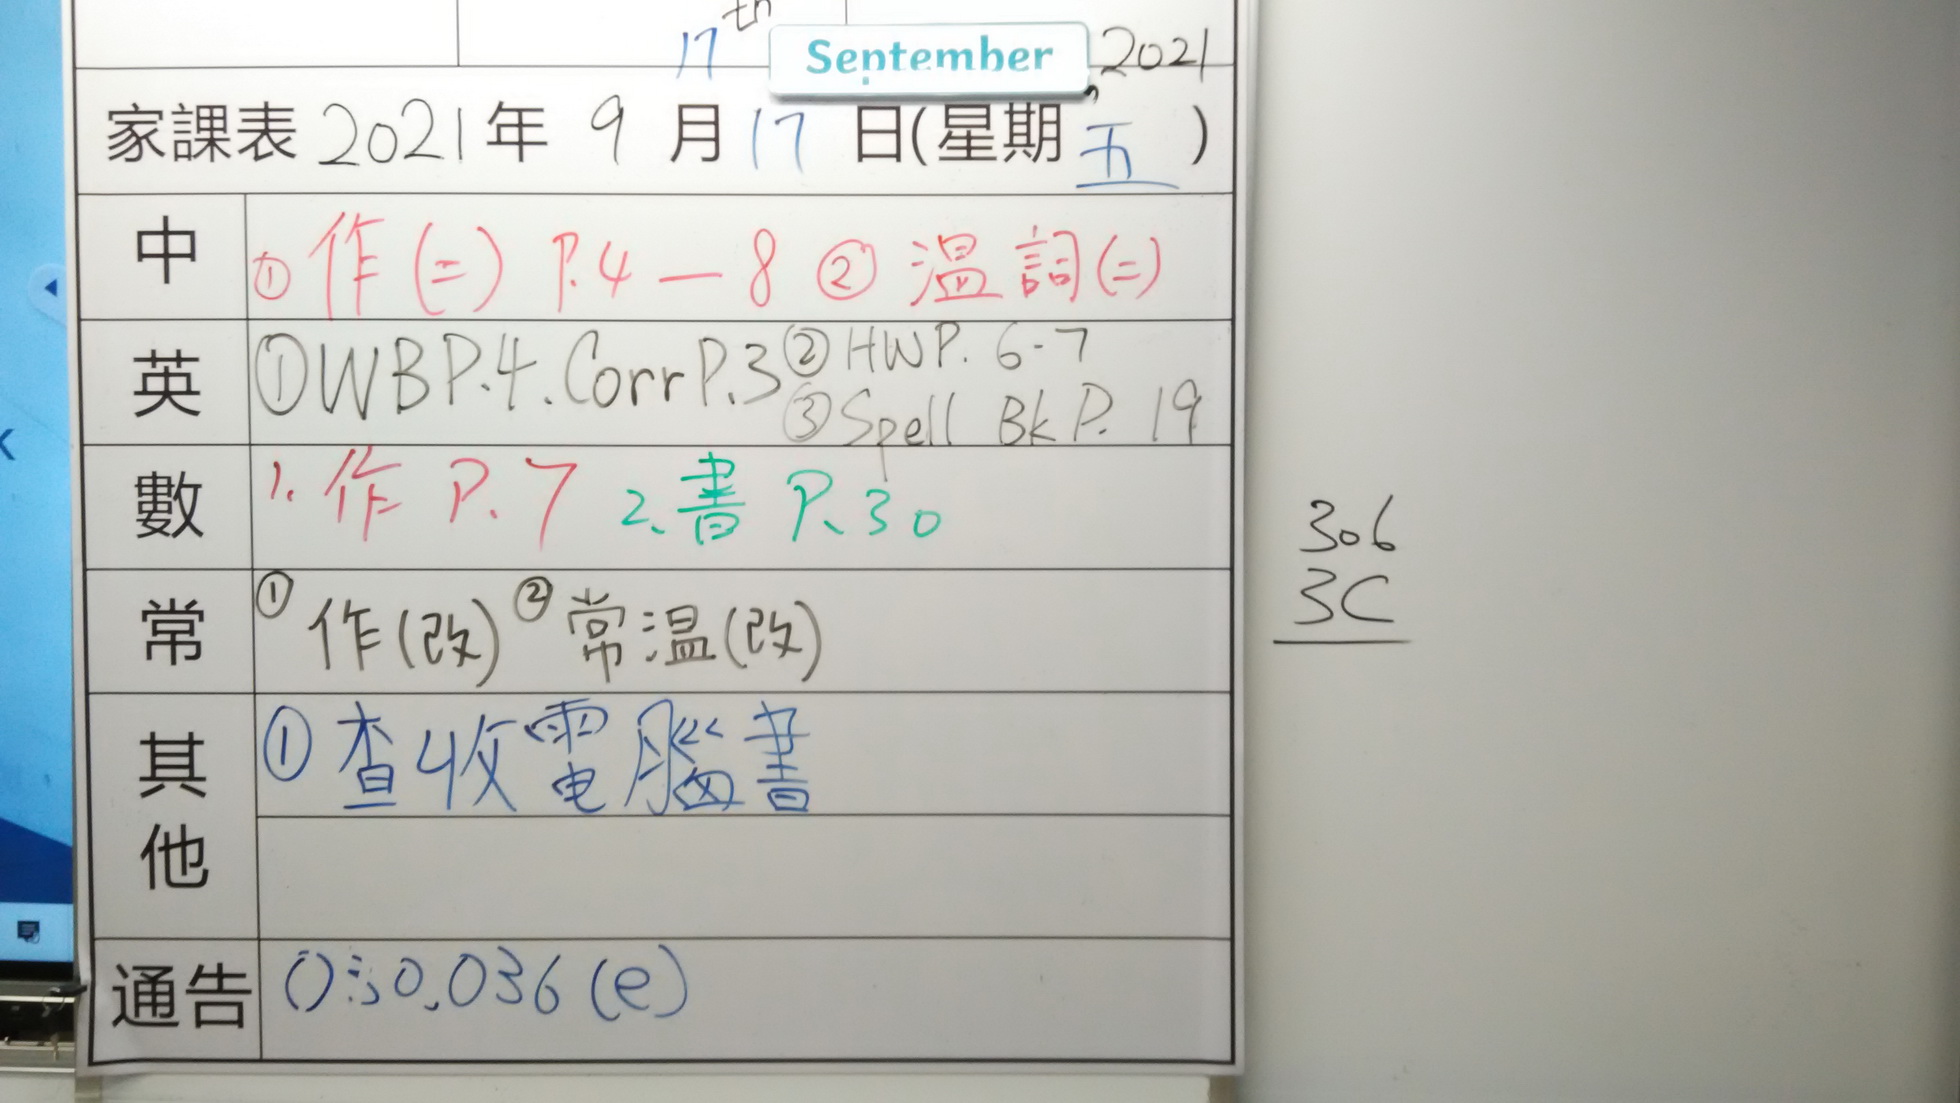 17th September, 2021
家課表 2021年 9 月 17 日(星期五)
中 ①作(二) P.4—8 ②溫詞(二)
英 ①WB P.4. Corr P.3 ②HW P. 6-7
③Spell Bk P. 19
數 1. 作 P.7 2. 書 P.30
常 ①作(改) ②常溫(改)
其他 ①查收電腦書
通告 036(e)
306
3C